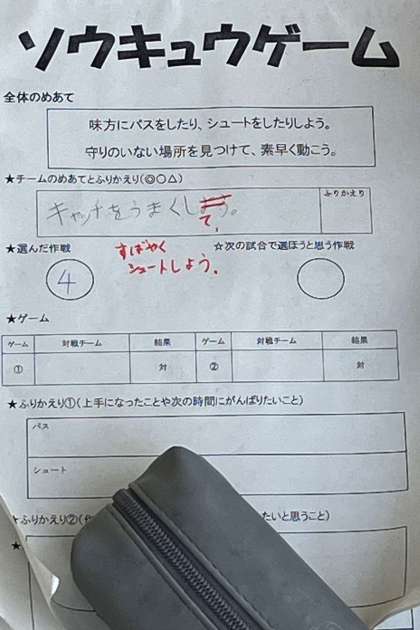 ソウキュウゲーム
全体のめあて
味方にパスをしたり、シュートをしたりしよう。
守りのいない場所を見つけて、素早く動こう。
★チームのめあてとふりかえり(◎○△)
ふりかえり
キャッチをうまくしよう。
て、
すばやく
シュートしよう。
★選んだ作戦
☆次の試合で選ぼうと思う作戦
4
★ゲーム
ゲーム 対戦チーム 結果 ゲーム 対戦チーム 結果
① 対 ② 対
★ふりかえり①(上手になったことや次の時間にがんばりたいこと)
パス
シュート
★ふりかえり②(
たいと思うこと)
★